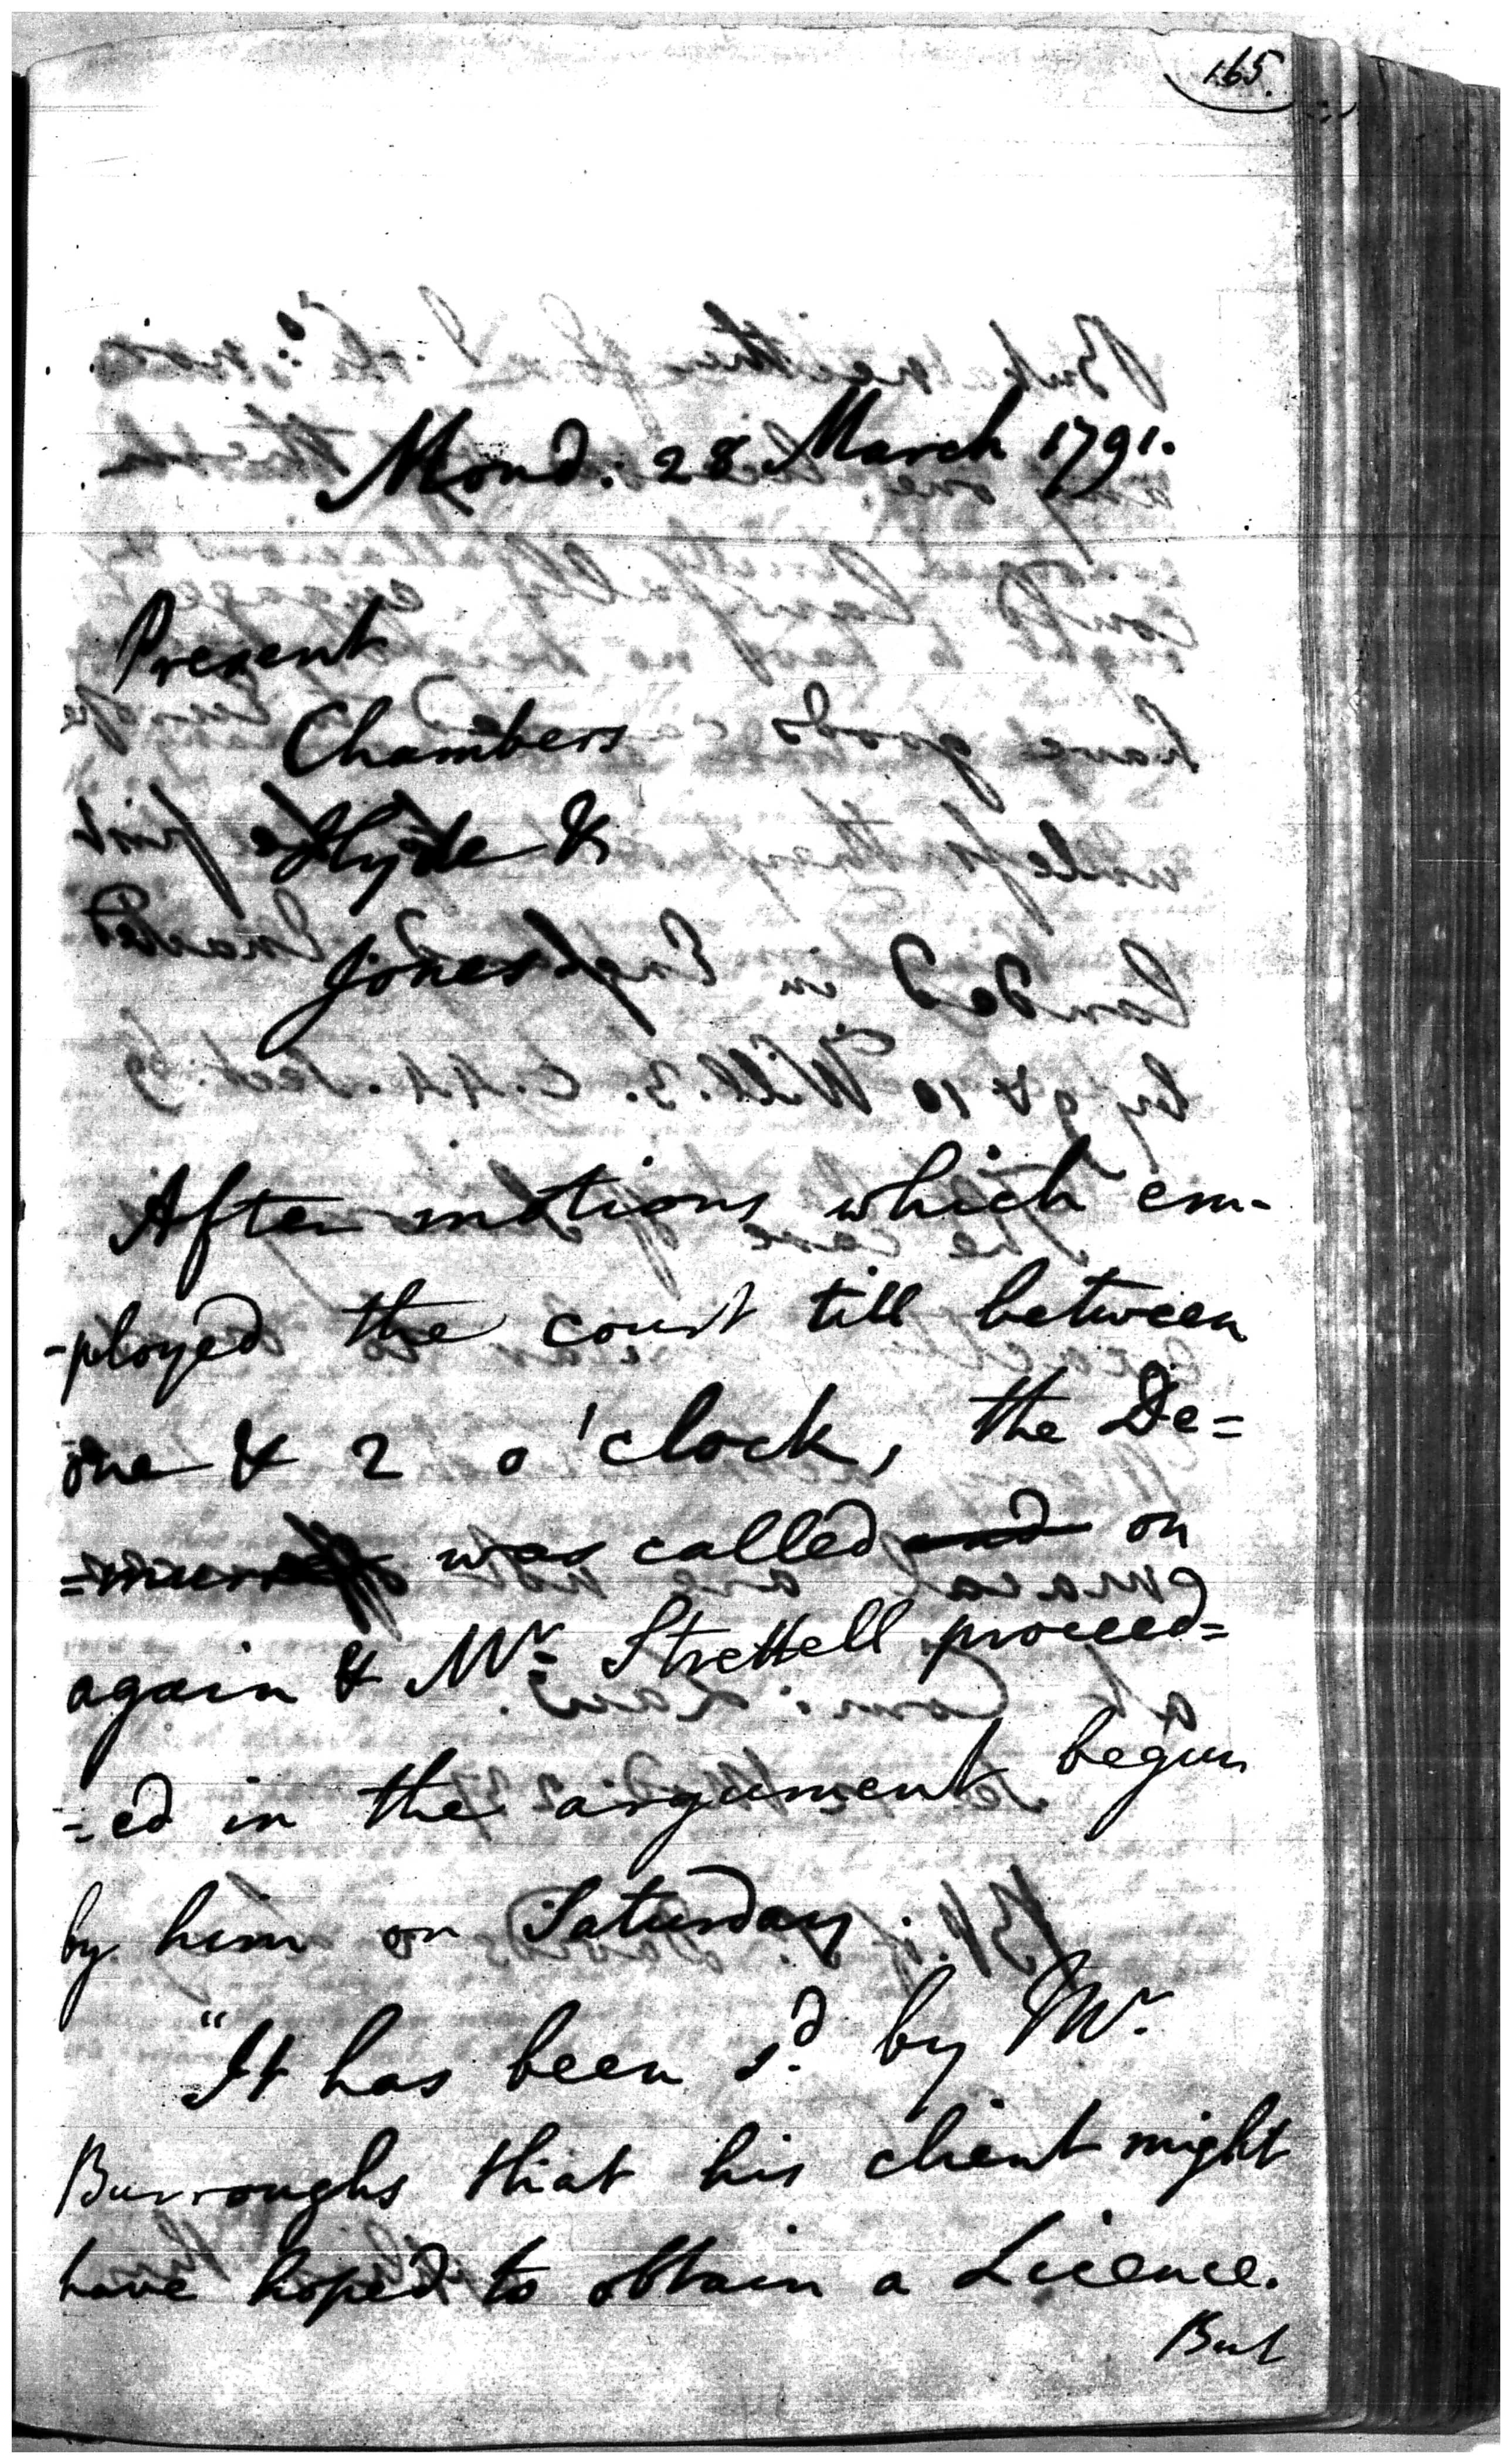 165.
Mond. 28 March 1791.
Present
Chambers
Hyde &
Jones
After motions which em-
-ployed the court till between
one & 2 o'clock, the De=
=murrer was called and on
again & Mr. Strettell proceed=
=ed in the argument begun
by him on Saturday.
"It has been sd. by Mr.
Burroughs that his client might
have hoped to obtain a Licence.
But